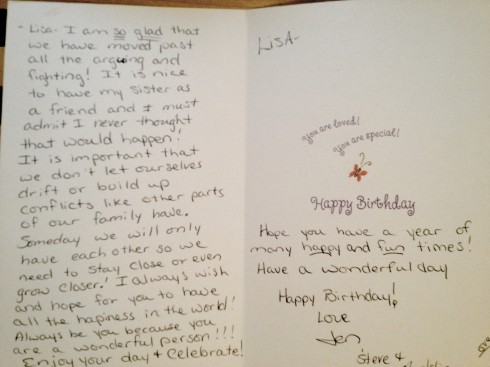 - Lisa- I am so glad that
we have moved past
all the arguing and
fighting! It is nice
to have my sister as
a friend and I must
admit I never thought
that would happen!
It is important that
we don't let ourselves
drift or build up
conflicts like other parts
of our family have.
Someday we will only
have each other so we
need to stay close or even
grow closer! I always wish
and hope for you to have
all the hapiness in the world!
Always be you because you
are a wonderful person!!!
Enjoy your day & Celebrate!
Lisa-
you are loved!
you are special!
Happy Birthday
Hope you have a year of
many happy and fun times!
Have a wonderful day
Happy Birthday!
Love
Jen
Steve &